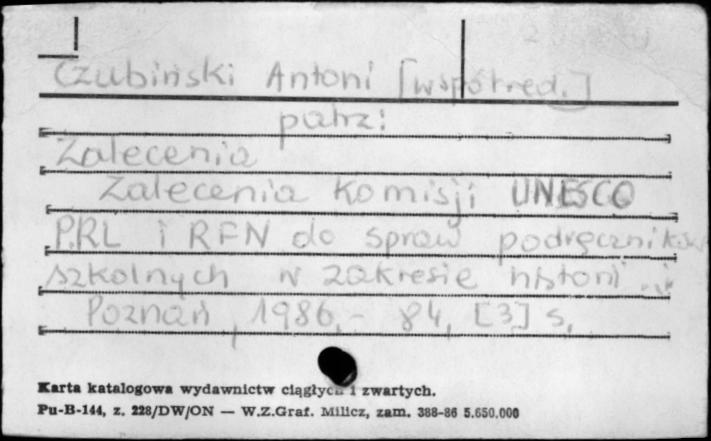 Czubiński Antoni [współred.]
patrz:
Zalecenia
Zalecenia Komisji UNESCO
PRL i RFN do spraw podręczników
szkolnych w zakresie historii i
Poznań, 1986.- 84, [3] s.
Karta katalogowa wydawnictw ciągłych i zwartych.
Pu-B-144, z. 228/DW/ON — W.Z.Graf. Milicz, zam. 388-86 5.650.000